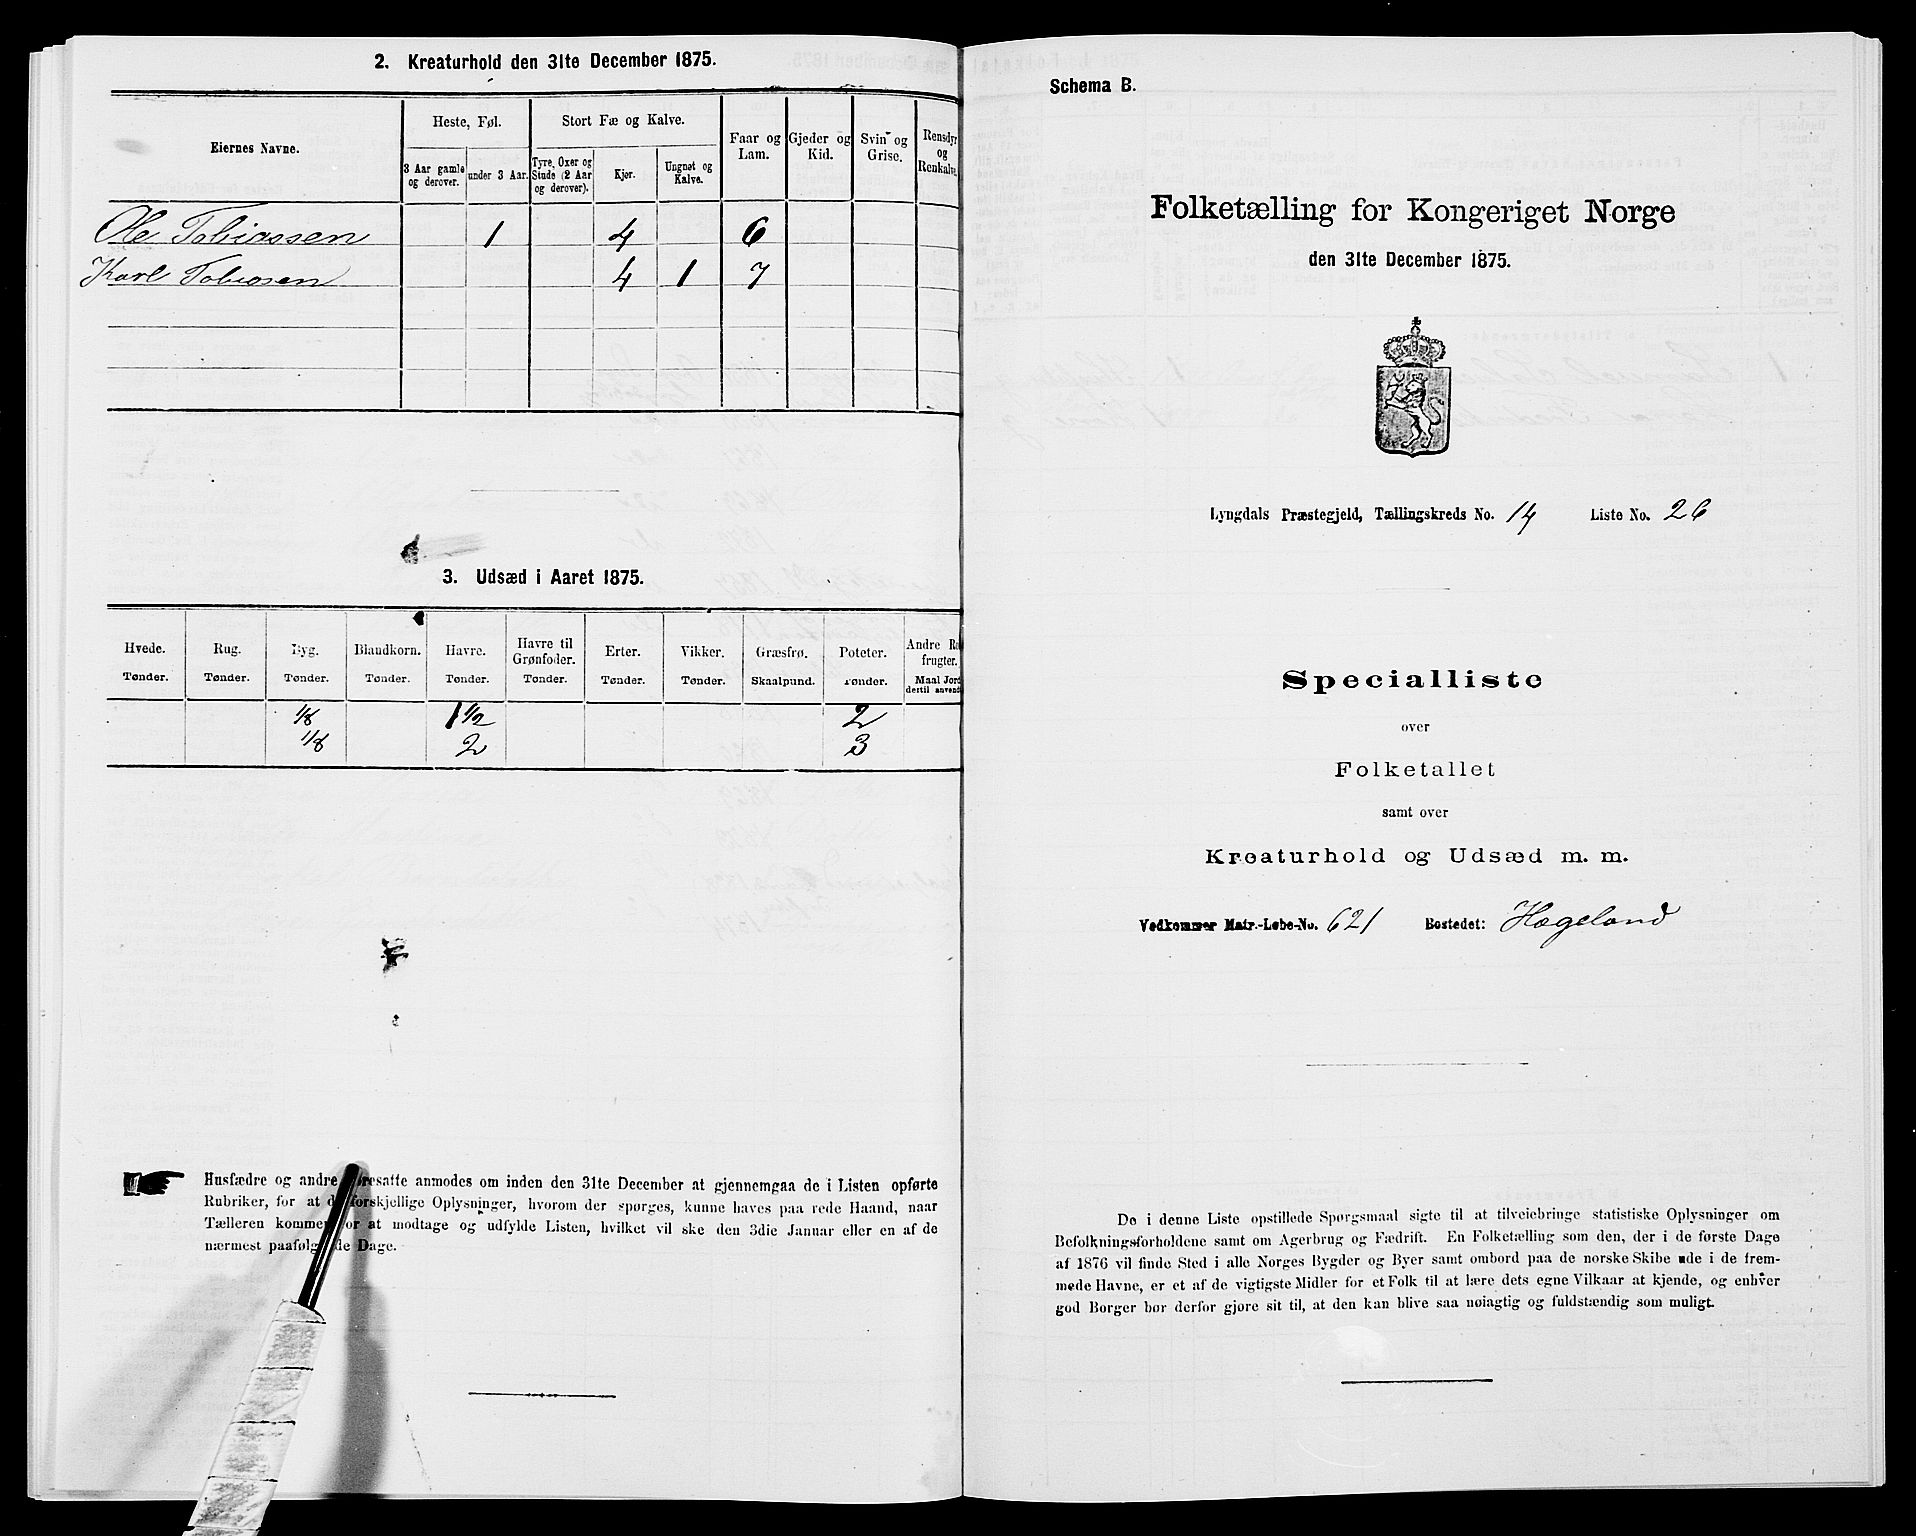 2. Kreaturhold den 31te December 1875.
Eiernes Navne.
Heste, Føl.
Stort Fæ og Kalve.
Faar og Lam.
Gjeder og Kid.
Svin og Grise.
Rensdyr og Renkalve.
3 Aar gamle og derover.
under 3 Aar.
Tyre, Oxer og Stude (2 Aar og derover).
Kjør.
Ungnøt og Kalve.
Ole Tobiassen 1 4 6
Karl Tobiasen 4 1 7
3. Udsæd i Aaret 1875.
Hvede. Rug. Byg. Blandkorn. Havre. Havre til Grønfoder. Erter. Vikker. Græsfrø. Poteter. Andre frugter.
Tønder. Tønder. Tønder. Tønder. Tønder. Tønder. Tønder. Tønder. Skaalpund. Tønder. Maal Jord dertil anvendt
1/8 1 1/2 2
1/8 2 3
Husfædre og andre Foresatte anmodes om inden den 31te December at gjennemgaa de i Listen opførte
Rubriker, for at de forskjellige Oplysninger, hvorom der spørges, kunne haves paa rede Haand, naar
Tælleren kommer for at modtage og udfylde Listen, hvilket vil ske den 3die Januar eller en af de
nærmest paafølgende Dage.
Schema B.
Folketælling for Kongeriget Norge
den 31te December 1875.
Lyngdals Præstegjeld, Tællingskreds No. 14 Liste No. 26
Specialliste
over
Folketallet
samt over
Kreaturhold og Udsæd m. m.
Vedkommer Matr.-Løbe-No. 621 Bostedet: Hægeland
De i denne Liste opstillede Spørgsmaal sigte til at tilveiebringe statistiske Oplysninger om
Befolkningsforholdene samt om Agerbrug og Fædrift. En Folketælling som den, der i de første Dage
af 1876 vil finde Sted i alle Norges Bygder og Byer samt ombord paa de norske Skibe ude i de frem-
mede Havne, er et af de vigtigste Midler for et Folk til at lære dets egne Vilkaar at kjende, og enhver
god Borger bør derfor gjøre sit til, at den kan blive saa nøiagtig og fuldstændig som muligt.